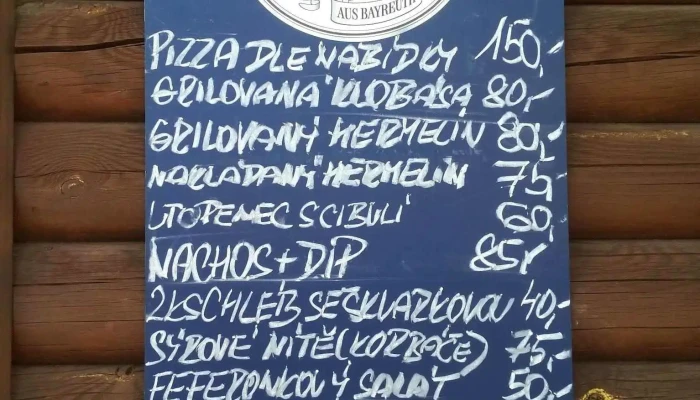 AUS BAYREUTH
PIZZA DLE NABÍDKY 150,-
GRILOVANÁ KLOBÁSA 80,-
GRILOVANÝ HERMELÍN 80,-
NAKLÁDANÝ HERMELÍN 75,-
UTOPENEC S CIBULÍ 60,-
NACHOS + DIP 85,-
2KS CHLÉB SE ŠKVARKOVOU 40,-
SÝROVÉ NITĚ (KORBÁČE) 75,-
FEFERONKOVÝ SALÁT 50,-